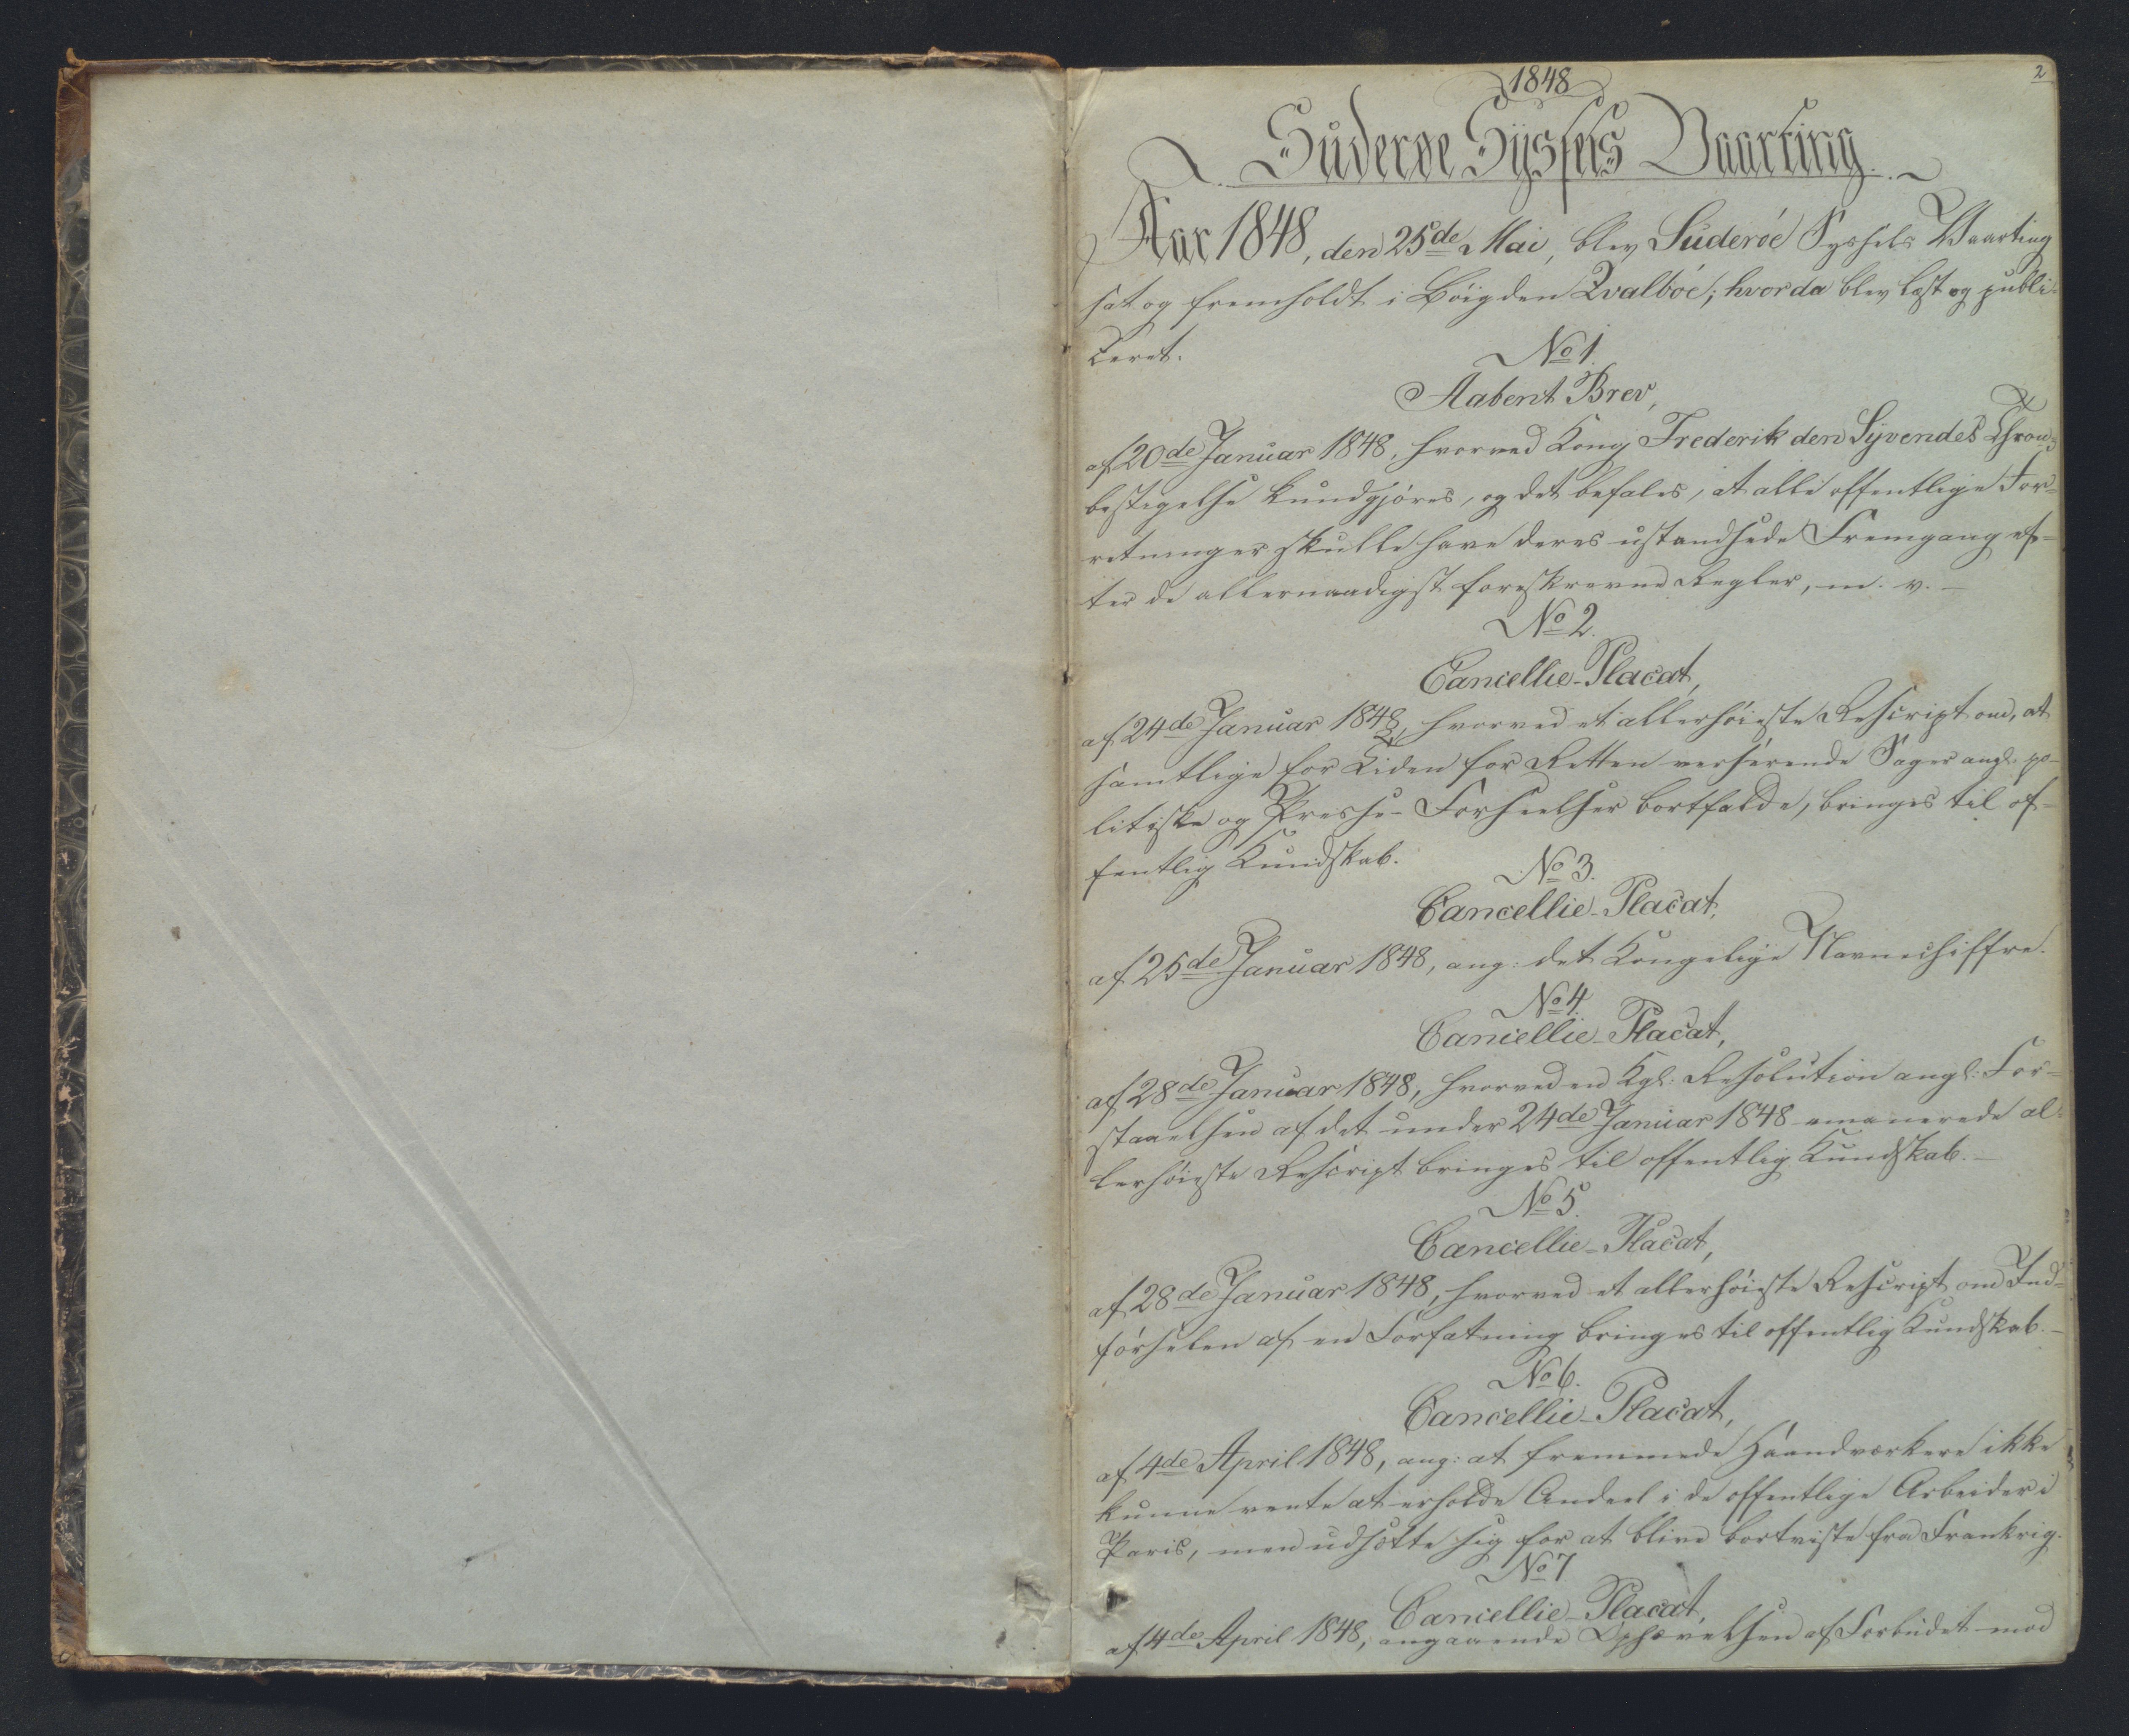 2
1848
Süderøe Sÿssels Vaarting
Aar 1848, den 25de Mai, blev Süderöe Syssels Vaarting
sat og fremholdt i Böigden Qvalböe; hvorda blev læst og publi-
ceret.
No 1.
Aabent Brev,
af 20de Januar 1848, hvorved Kong Frederik den Syvendes Thron-
bestigelse kundgjöres, og det befales, at alle offentlige For-
retninger skulle have deres ustandsede Fremgang ef-
ter de allernaadigst foreskrevne Regler, m. v. -
No 2.
Cancellie-Placat,
af 24de Januar 1848, hvorved et allerhöieste Rescript om, at
samtlige for Tiden for Retten verserende Sager angl. po-
litiske og Presse-Forseelser bortfalde, bringes til of-
fentlig Kundskab.
No 3.
Cancellie-Placat,
af 25de Januar 1848, ang: det Kongelige Navnechiffre.
No 4.
Cancellie-Placat,
af 28de Januar 1848, hvorved en Kgl. Resolution angl: For-
staaelsen af det under 24de Januar 1848 emanerede al-
lerhöieste Rescript bringes til offentlig Kundskab. -
No 5.
Cancellie-Placat,
af 28de Januar 1848, hvorved et allerhöieste Rescript om Ind-
förselen af en Forfatning bringes til offentlig Kundskab. -
No 6.
Cancellie-Placat,
af 4de April 1848, ang: at fremmede Haandværkere ikke
kunne vente at erholde Andeel i de offentlige Arbeider i
Paris, men udsætte sig for at blive bortviste fra Frankrig.
No 7
Cancellie-Placat,
af 4de April 1848, angaaende Ophævelsen af Forbudet mod